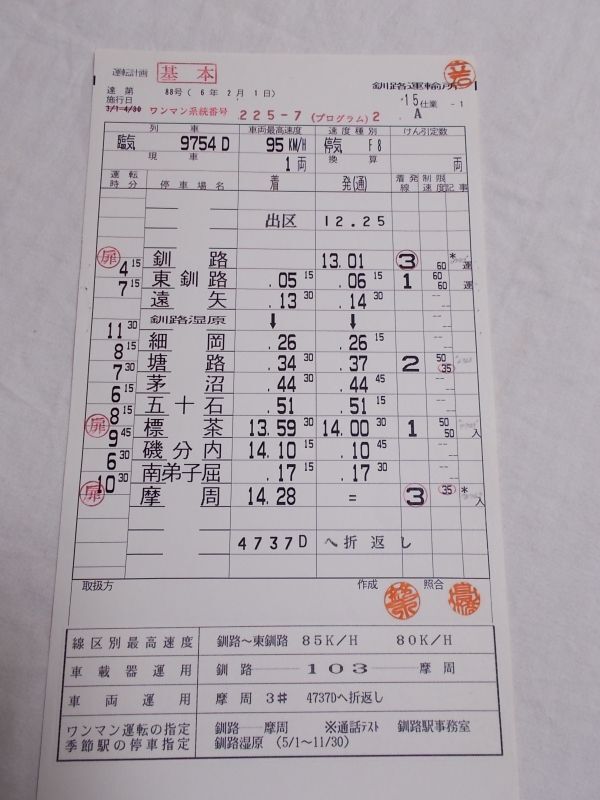 運転計画 基本
達第 88号(6年2月1日) 釧路運輸所
施行日 15仕業-1
3/1=4/30 ワンマン系統番号 225-7(プログラム)2 A
列車 車両最高速度 速度種別 けん引定数
臨気 9754D 95KM/H 停気 F8
現車 1両 換算 両
運転時分 停車場名 着 発(通) 着発線 制限速度 記事
出区 12.25
扉 釧路 13.01 3 60 * 運
4 15
東釧路 .05 15 .06 15 1 60 60 運
7 15
遠矢 .13 30 .14 30
釧路湿原 ↓ ↓
11 30
細岡 .26 .26 15
8 15
塘路 .34 30 .37 2 50 35
7 30
茅沼 .44 30 .44 45
6 15
五十石 .51 .51 15
8 15
扉 標茶 13.59 30 14.00 30 1 50 50 入
9 45
磯分内 14.10 15 .10 45
6 30
南弟子屈 .17 15 .17 30
10 30
扉 摩周 14.28 = 3 35 * 入
4737D へ折返し
取扱方 作成 照合
線区別最高速度 釧路~東釧路 85K/H 80K/H
車載器運用 釧路―103―摩周
車両運用 摩周 3# 4737Dへ折返し
ワンマン運転の指定 釧路―摩周 ※通話テスト 釧路駅事務室
季節駅の停車指定 釧路湿原 (5/1~11/30)